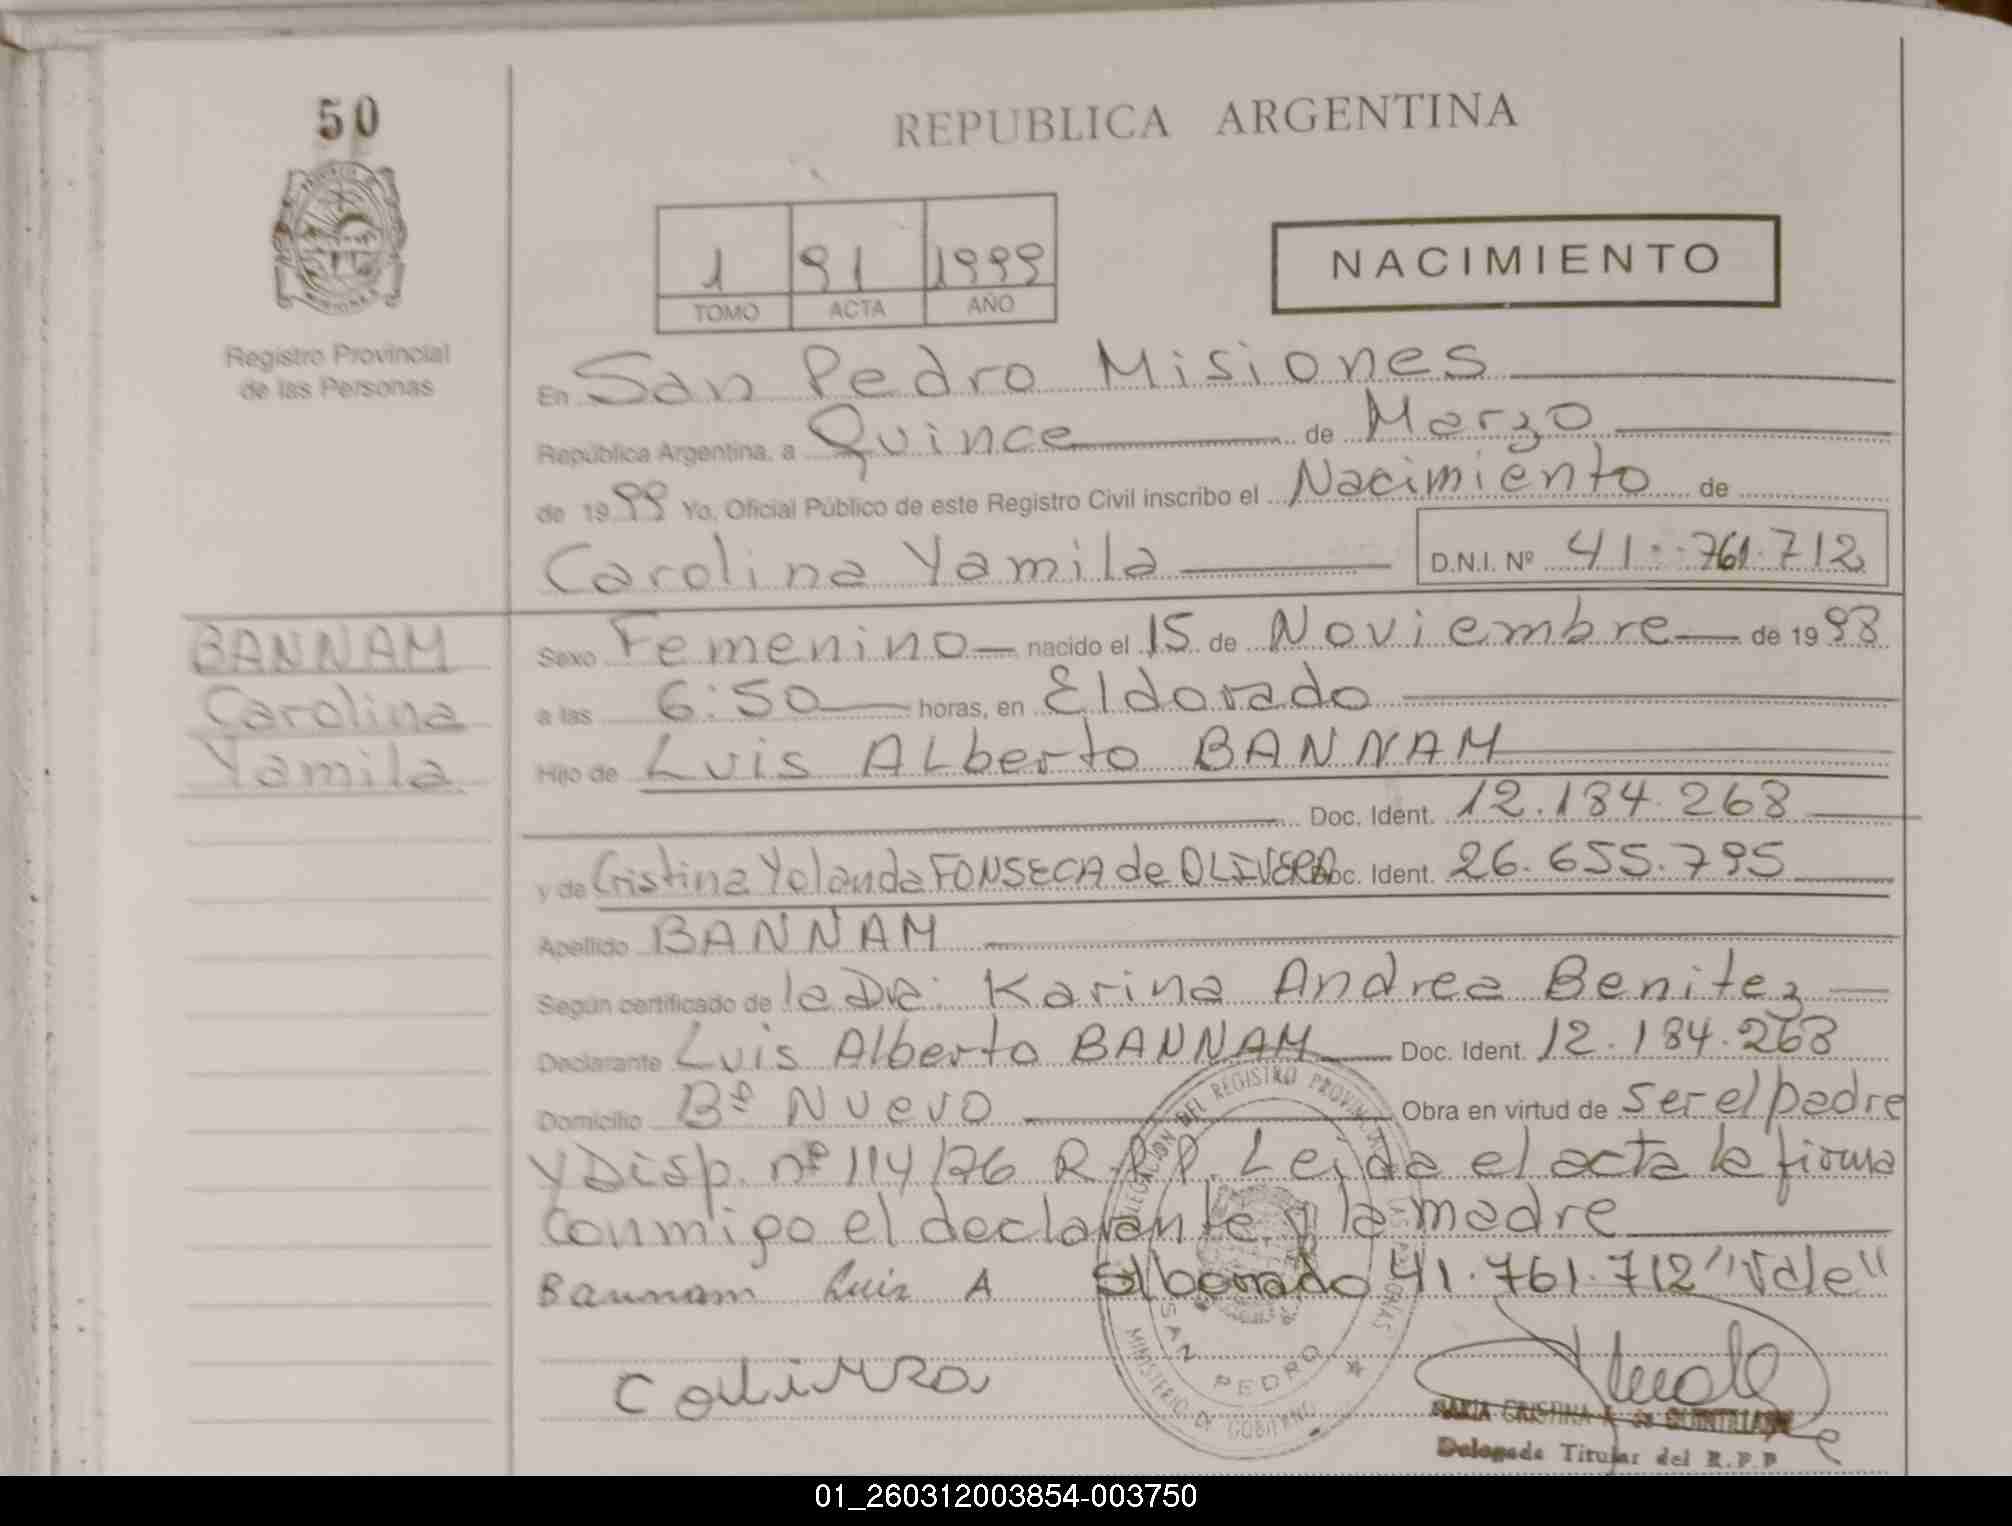 50
REPUBLICA ARGENTINA
1 91 1999
TOMO ACTA AÑO
NACIMIENTO
Registro Provincial
de las Personas
En San Pedro Misiones
República Argentina, a Quince de Marzo
de 1999 Yo, Oficial Público de este Registro Civil inscribo el Nacimiento de
Carolina Yamila D.N.I. Nº 41.761.712
BANNAM
Carolina
Yamila
Sexo Femenino nacido el 15 de Noviembre de 1998
a las 6:50 horas, en Eldorado
Hijo de Luis Alberto BANNAM
Doc. Ident. 12.184.268
y de Cristina Yolanda FONSECA de OLIVERA Doc. Ident. 26.655.795
Apellido BANNAM
Según certificado de la Dra. Karina Andrea Benitez
Declarante Luis Alberto BANNAM Doc. Ident. 12.184.268
Domicilio Bº Nuevo Obra en virtud de ser el padre
y Disp. nº 114/76 R.P.P. Leida el acta la firma
conmigo el declarante y la madre
Bannam Luis A Elborrado 41.761.712 "Vale"
DELEGACION DEL REGISTRO PROVINCIAL DE LAS PERSONAS
SAN PEDRO
MINISTERIO DE GOBIERNO
MARIA CRISTINA A. de
Delegada Titular del R.P.P
01_260312003854-003750